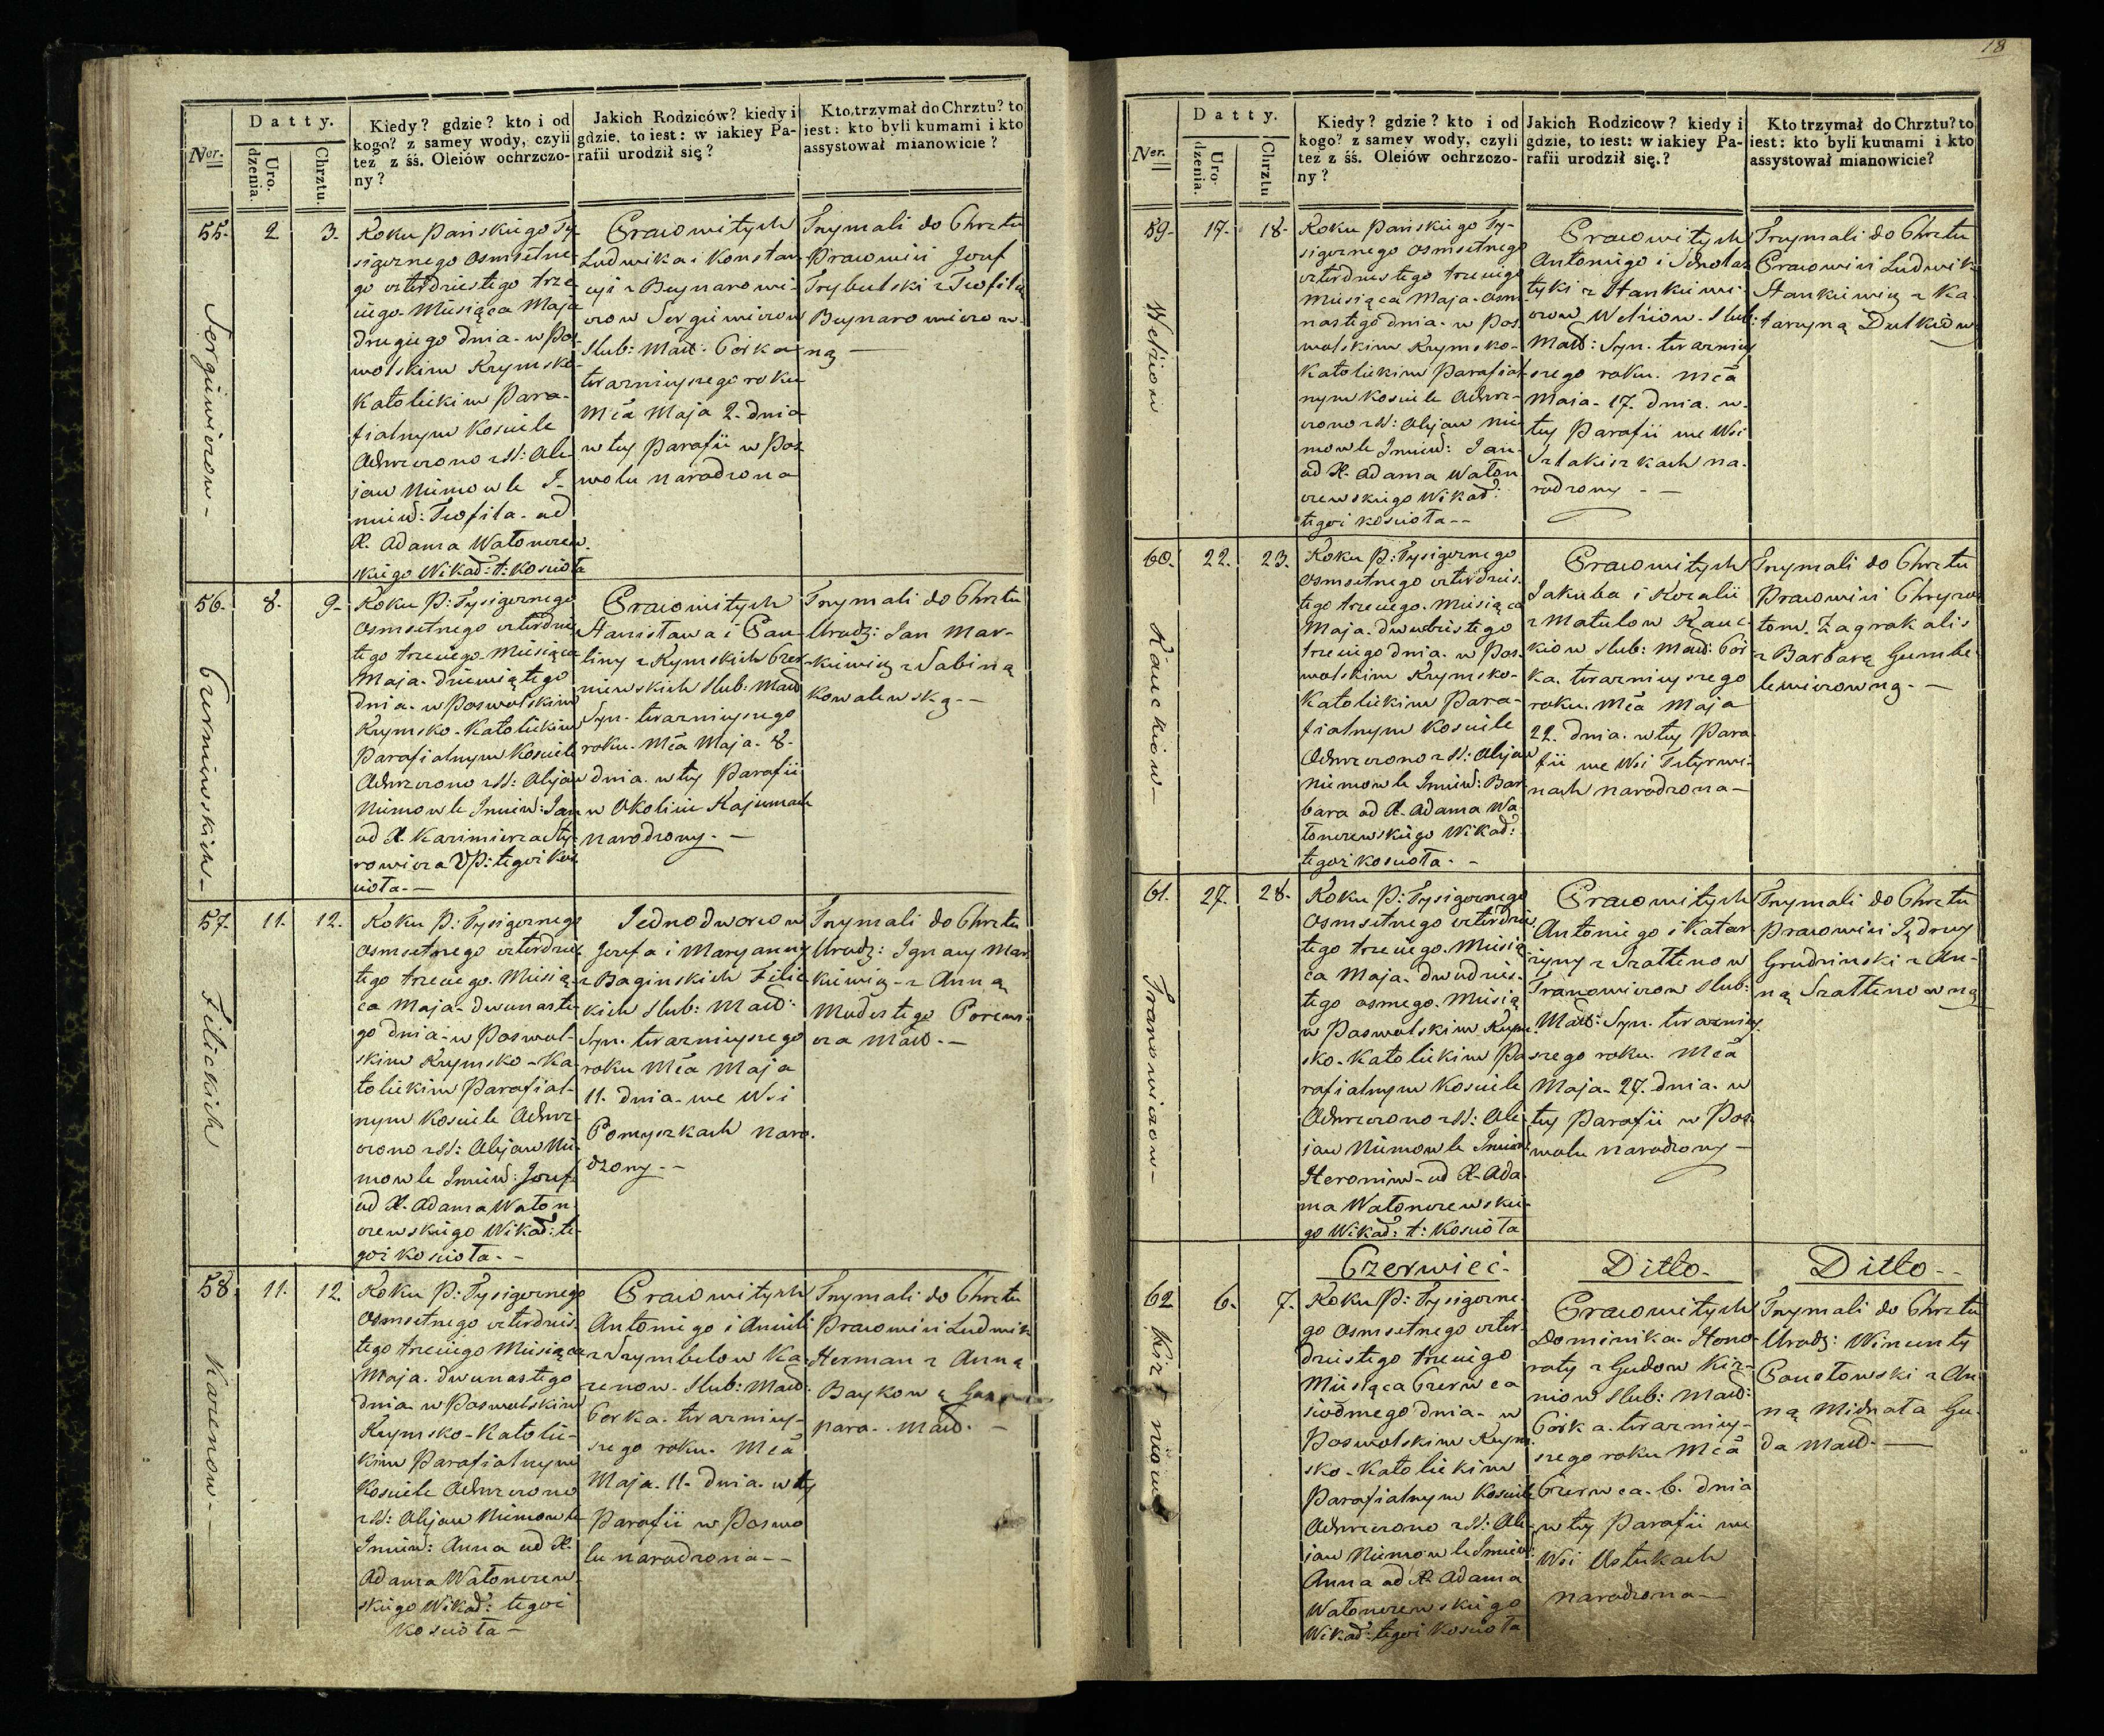 Datty.
Ner.
Uro. dzenia.
Chrztu.
Kiedy? gdzie? kto i od
kogo? z samey wody, czyli
też z śś. Oleiów ochrzczo-
ny?
Jakich Rodziców? kiedy i
gdzie, to iest: w iakiey Pa-
rafii urodził się?
Kto trzymał do Chrztu? to
iest: kto byli kumami i kto
assystował mianowicie?
55. 2 3.
Roku Pańskiego Ty-
siącznego Osmsetne-
go czterdziestego trze-
ciego Miesiąca Maja
drugiego dnia w Pos-
wolskim Rzymsko-
Katolickim Para-
fialnym Kościele
Ochrzczono z SS: Ole-
jami Niemowle I-
mieniem: Teofila od
X. Adama Watonczew-
skiego Wikar: t: Kościoła
Pracowitych
Ludwika i Konstan-
cyi z Beynarowi-
czow Sergiewiczow
Slub: Małż: Córka
terazniejszego roku
Mca Maja 2. dnia
w tej Parafii w Pos-
wolu narodzona
Trzymali do Chrztu
Pracowici Jozef
Trybulski z Teofilą
Beynarowiczow-
ną
56. 8. 9.
Roku P: Tysiącznego
Osmsetnego czterdzies-
tego trzeciego Miesiąca
Maja dziewiątego
dnia w Poswolskim
Rzymsko-Katolickim
Parafialnym Kościele
Ochrzczono z SS: Olejami
Niemowle Imien: Jan
od X. Kazimierza
tegoż Koś-
cioła
Pracowitych
Stanisława i Pau-
liny z Rymskich Czer-
niewskich Slub: Małż
Syn terazniejszego
roku Mca Maja 8.
dnia w tej Parafii
w Okolicy Rajunach
narodzony.
Trzymali do Chrztu
Urodz: Jan Mar-
kiewicz z Sabiną
Kowalewską
57. 11. 12.
Roku P: Tysiącznego
Osmsetnego czterdzies-
tego trzeciego Miesią-
ca Maja dwunaste-
go dnia w Poswol-
skim Rzymsko-Ka-
tolickim Parafial-
nym Kościele Ochrz-
czono z SS: Olejami Nie-
mowle Imien: Jozef
od X. Adama Waton-
czewskiego Wikar: te-
goż Kościoła
Jednodworcow
Jozefa i Maryanny
z Baginskich Filic-
kich Slub: Małż:
Syn terazniejszego
roku Mca Maja
11. dnia we Wsi
Pomyszkach naro-
dzony
Trzymali do Chrztu
Urodz: Ignacy Mar-
kiewicz z Anną
Modestego
Małż.
58. 11. 12.
Roku P: Tysiącznego
Osmsetnego czterdzies-
tego trzeciego Miesiąca
Maja dwunastego
dnia w Poswolskim
Rzymsko-Katolic-
kim Parafialnym
Kościele Ochrzczono
z SS: Olejami Niemowle
Imien: Anna od X.
Adama Watonczew-
skiego Wikar: tegoż
Kościoła
Pracowitych
Antoniego i Anieli
z Szymbelow Ka-
renow Slub: Małż:
Corka terazniej-
szego roku Mca
Maja 11. dnia w tej
Parafii w Poswo-
lu narodzona
Trzymali do Chrztu
Pracowici Ludwik
Herman z Anną
Baykową
Małż.
18
Datty.
Ner.
Uro- dzenia.
Chrztu
Kiedy? gdzie? kto i od
kogo? z samey wody, czyli
też z śś. Oleiów ochrzczo-
ny?
Jakich Rodzicow? kiedy i
gdzie, to iest: w iakiey Pa-
rafii urodził się.?
Kto trzymał do Chrztu? to
iest: kto byli kumami i kto
assystował mianowicie?
59. 17. 18.
Roku Pańskiego Ty-
siącznego Osmsetnego
czterdziestego trzeciego
Miesiąca Maja Osm-
nastego dnia w Pos-
wolskim Rzymsko-
Katolickim Parafial-
nym Kościele Ochrz-
czono z SS: Olejami Nie-
mowle Imien: Jan
od X. Adama Waton-
czewskiego Wikar:
tegoż Kościoła
Pracowitych
Antoniego i Scholas-
tyki z Stankiewi-
czow Welziow Slub:
Małż: Syn terazniej-
szego roku Mca
Maja 17. dnia w
tej Parafii we Wsi
narodzony
Trzymali do Chrztu
Pracowici Ludwik
Stankiewicz z Ka-
tarzyną
60. 22. 23.
Roku P: Tysiącznego
Osmsetnego czterdzies-
tego trzeciego Miesiąca
Maja dwudziestego
trzeciego dnia w Pos-
wolskim Rzymsko-
Katolickim Para-
fialnym Kościele
Ochrzczono z SS: Olejami
Niemowle Imien: Bar-
bara od X. Adama Wa-
tonczewskiego Wikar:
tegoż Kościoła
Pracowitych
Jakuba i Rozalii
z Matulow Kauc-
kiow Slub: Małż: Cór-
ka terazniejszego
roku Mca Maja
22. dnia w tej Para-
fii we Wsi
narodzona
Trzymali do Chrztu
Pracowici Chryzos-
tom Zagrakalis
z Barbarą Gumbe-
lewiczowną
61. 27. 28.
Roku P: Tysiącznego
Osmsetnego czterdzies-
tego trzeciego Miesią-
ca Maja dwudzies-
tego osmego Miesią
w Poswolskim Rzym-
sko-Katolickim Pa-
rafialnym Kościele
Ochrzczono z SS: Ole-
jami Niemowle Imien:
Heronim od X. Ada-
ma Watonczewskie-
go Wikar: t: Kościoła
Pracowitych
Antoniego i Katar-
zyny z Szattenow
Franowiczow Slub:
Małż: Syn terazniej-
szego roku Mca
Maja 27. dnia w
tej Parafii w Pos-
wolu narodzony
Trzymali do Chrztu
Pracowici Jędrzej
Grudzinski z An-
ną Szattenowną
Czerwiec. Ditto. Ditto.
62 6. 7.
Roku P: Tysiączne-
go Osmsetnego czter-
dziestego trzeciego
Miesiąca Czerwca
siodmego dnia w
Poswolskim Rzym-
sko-Katolickim
Parafialnym Kościele
Ochrzczono z SS: Ole-
jami Niemowle Imien:
Anna od X. Adama
Watonczewskiego
Wikar: tegoż Kościoła
Pracowitych
Dominika Hono-
raty z Gudow Kirz-
niow Slub: Małż:
Córka terazniej-
szego roku Mca
Czerwca 6. dnia
w tej Parafii we
Wsi Ostukach
narodzona
Trzymali do Chrztu
Urodz: Wincenty
z An-
ną Michała Gu-
da Małż.
Sergiewiczow
Czerniewskich
Filickich
Karenow
Welziow
Kauckiow
Franowiczow